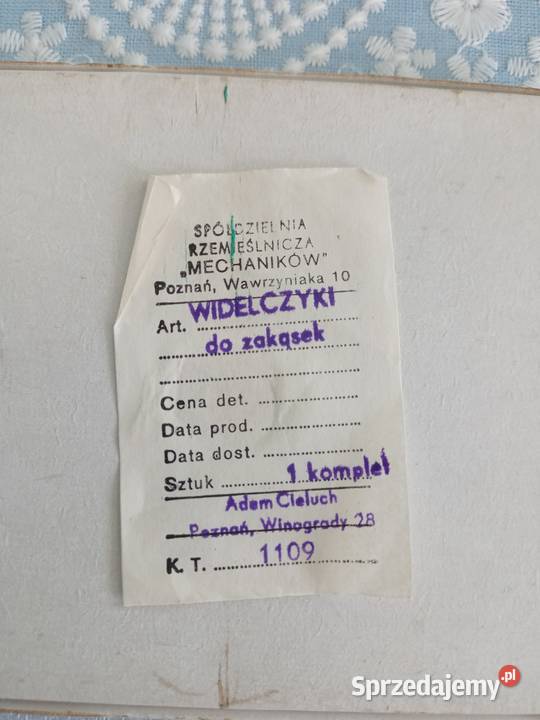 SPÓŁDZIELNIA
RZEMIEŚLNICZA
„MECHANIKÓW"
Poznań, Wawrzyniaka 10
Art. WIDELCZYKI
do zakąsek
Cena det. ........................
Data prod. ........................
Data dost. ........................
Sztuk ........................ 1 komplet
Adam Cieluch
Poznań, Winogrady 28
K. T. ........................ 1109
Sprzedajemy.pl